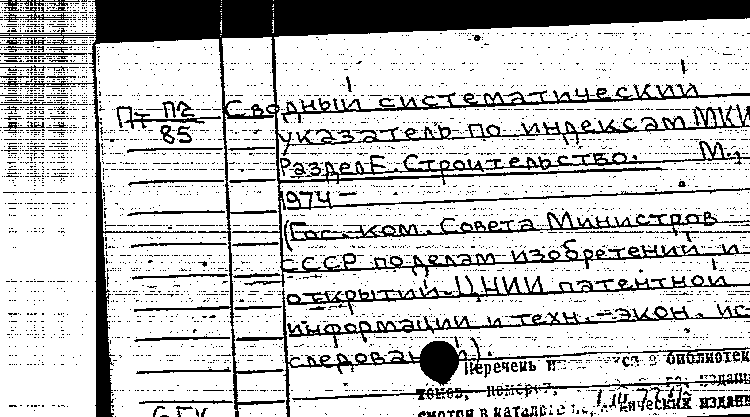 Пт П2/85 Сводный систематический
указатель по индексам МКИ
Раздел Е. Строительство. М.,
1974 —
(Гос. ком. Совета Министров
СССР по делам изобретений и
открытий. ЦНИИ патентной
информации и техн.-экон. ис
следований).
Перечень библиотек
томов, номеров,
смотри в каталоге изданий